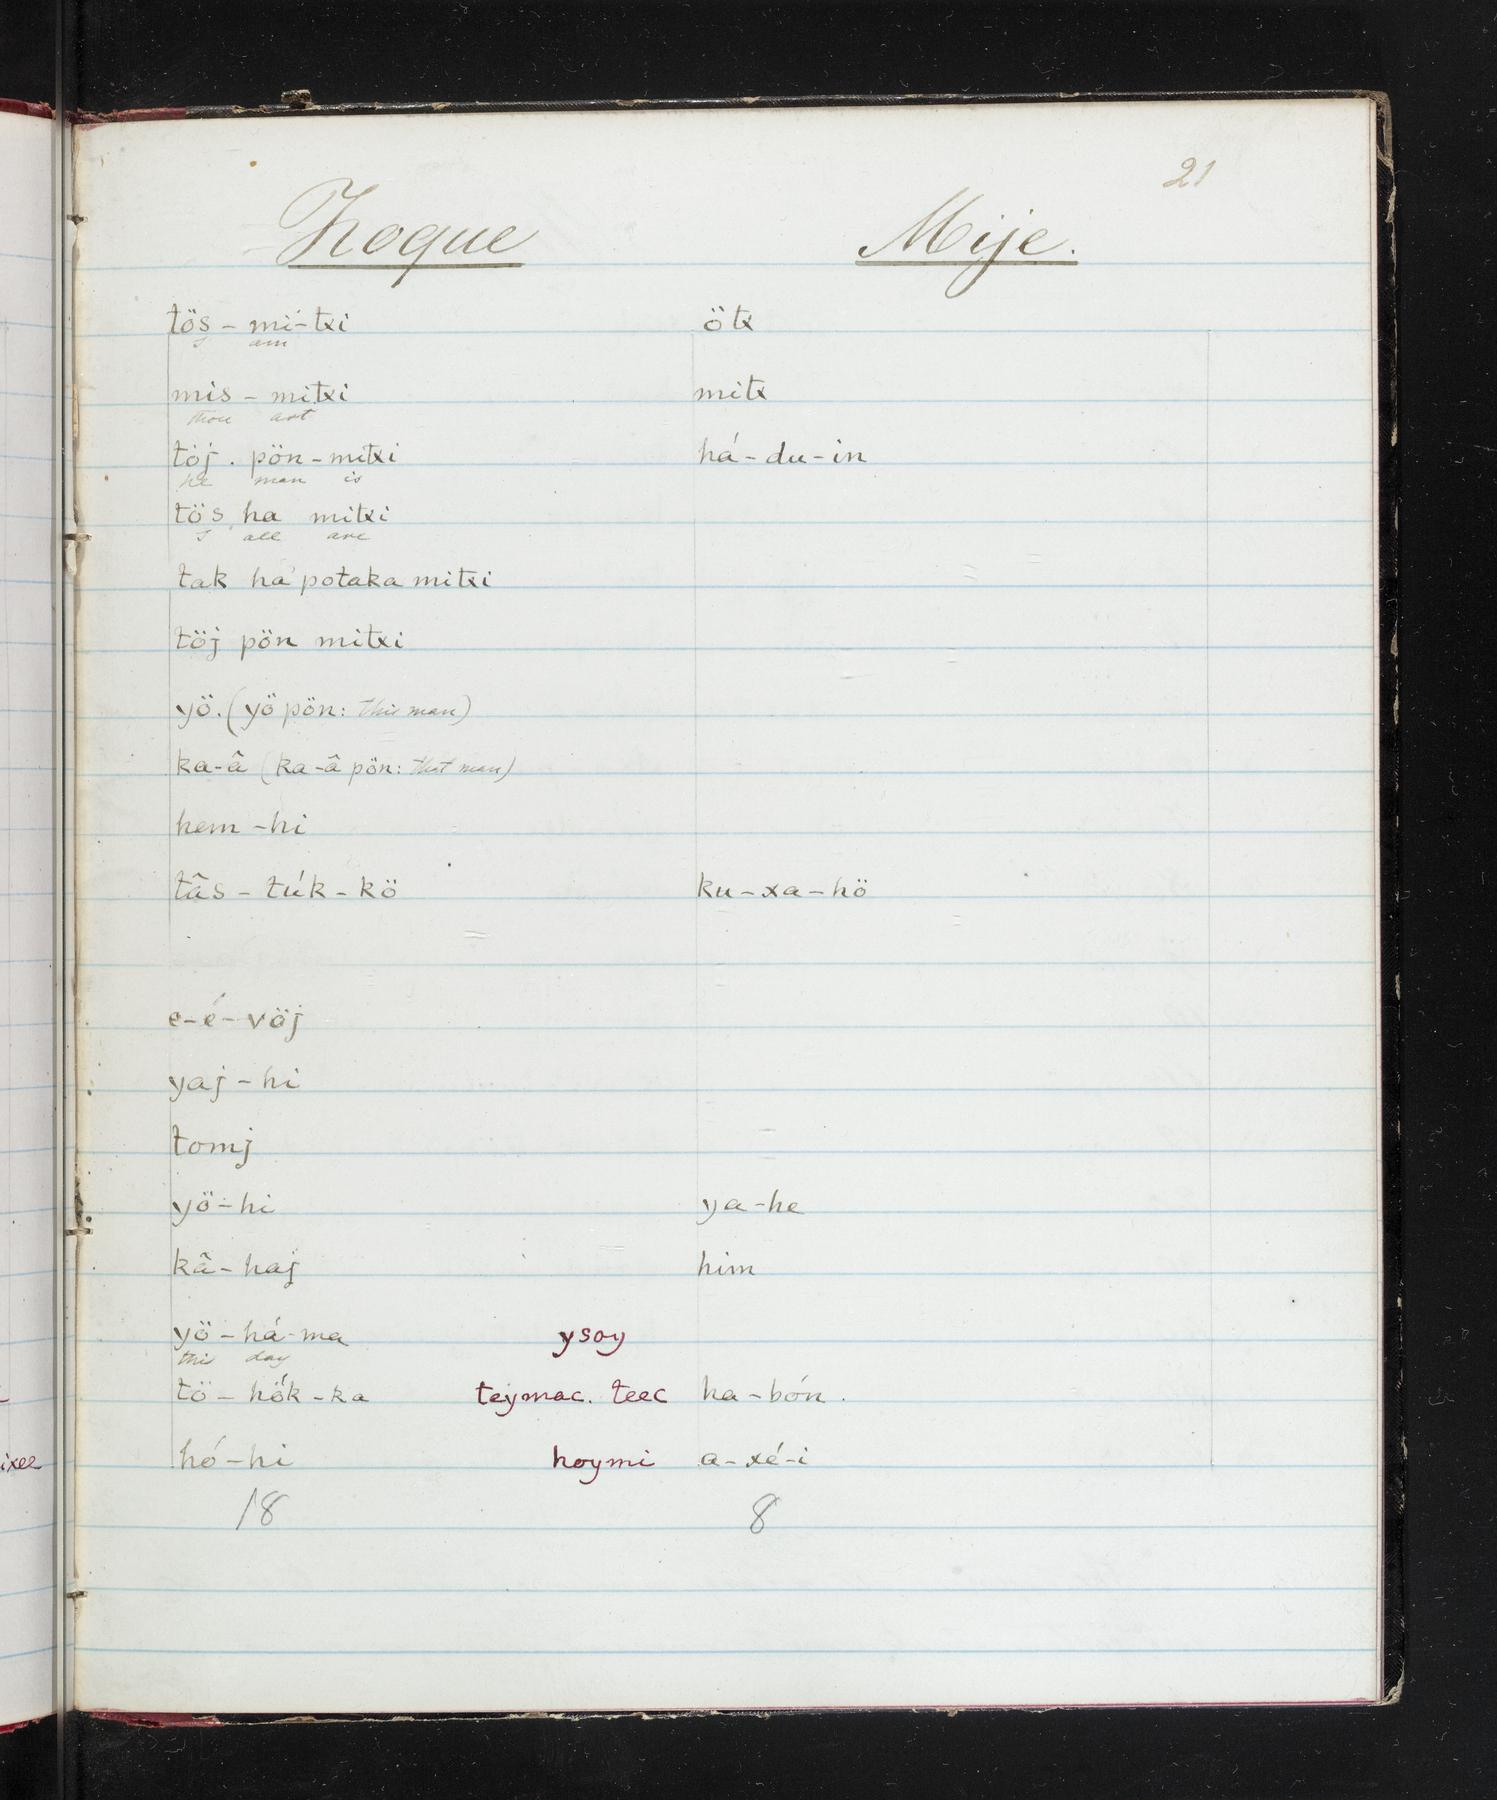 21
Zoque Mije.
tös - mí-txi ötx
I am
mis - mitxi mitx
thou art
töj . pön - mitxi há - du - in
he man is
tös ha mitxi
I all are
tak ha potaka mitxi
töj pön mitxi
yö. (yö pön: this man)
ka-â (ka-â pön: that man)
hem - hi
tâs - túk - kö ku - xa - hö
e - é - vöj
yaj - hi
tomj
yö - hi ya - he
kâ - haj him
yö - há - ma ysoy
this day
tö - hök - ka teymac. teec ha - bón.
ixee hó - hi hoymi a - xé - i
18 8